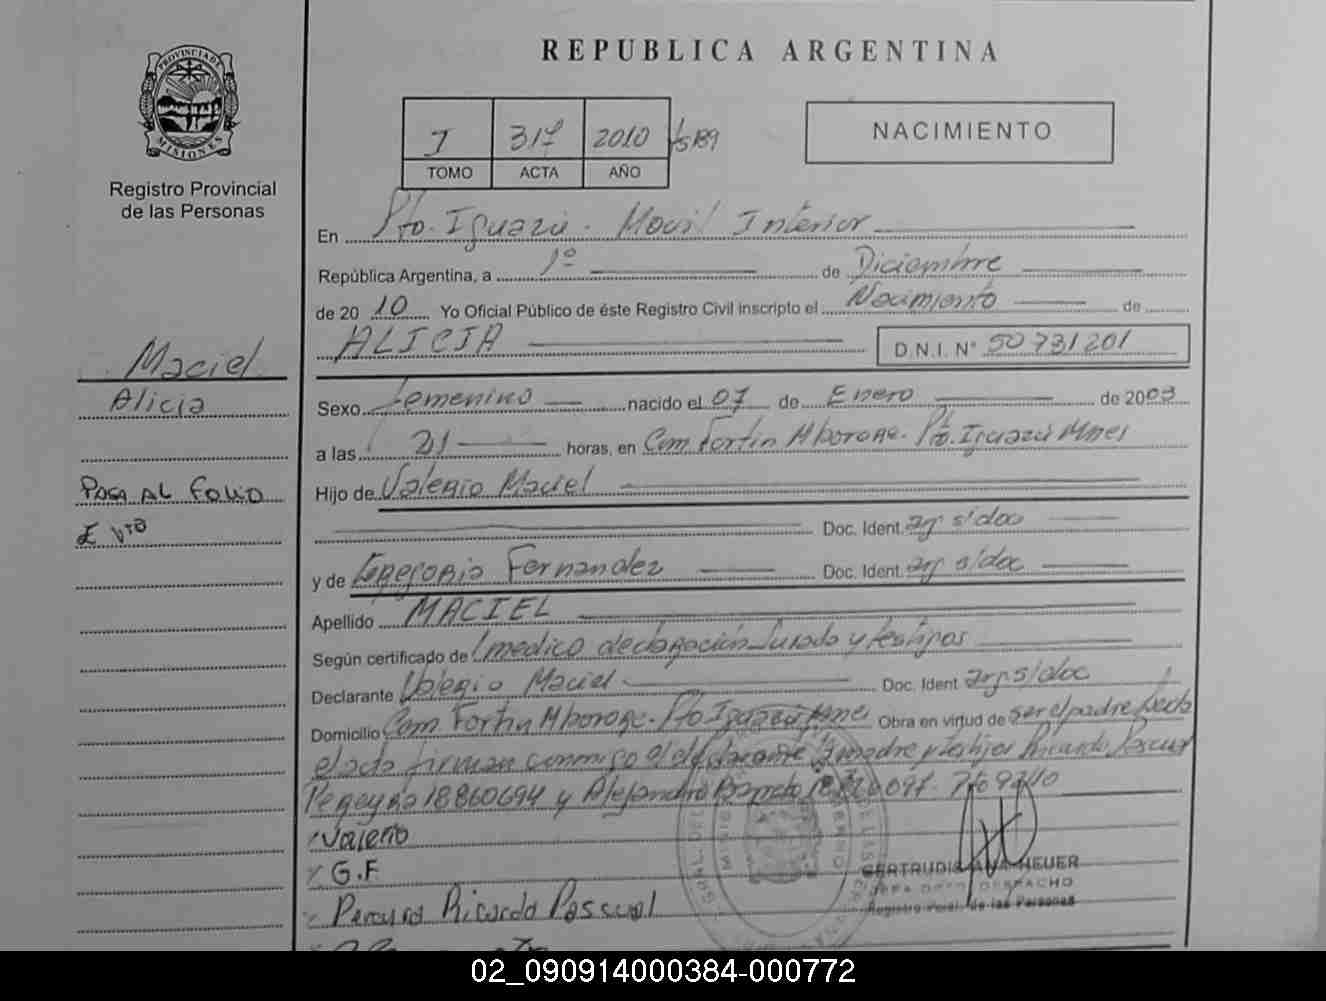 PROVINCIA DE
MISIONES
Registro Provincial
de las Personas
REPUBLICA ARGENTINA
I 317 2010
TOMO ACTA AÑO
NACIMIENTO
En Pto. Iguazú - Movil Interior
República Argentina, a 1º de Diciembre
de 2010 Yo Oficial Público de éste Registro Civil inscripto el Nacimiento de
ALICIA D.N.I. Nº 50731201
Maciel
Alicia
Sexo femenino nacido el 07 de Enero de 2003
a las 21 horas, en Com Fortin Mborore - Pto. Iguazú Mnes
PASA AL FOLIO
Hijo de Valerio Maciel
Doc. Ident. arg s/doc
y de Gregoria Fernandez Doc. Ident. arg s/doc
Apellido MACIEL
Según certificado de medico declaración Jurada y testigos
Declarante Valerio Maciel Doc. Ident arg s/doc
Domicilio Com Fortin Mborore - Pto Iguazú Mnes Obra en virtud de ser el padre
el acta firman conmigo el declarante madre y testigos Ricardo Pascual
Pereyra 18860694 y Alejandro
Valerio
G.F
Pereyra Ricardo Pascual
GERTRUDIS ANA HEUER
JEFA DPTO. DESPACHO
Registro Pcial. de las Personas
02_090914000384-000772